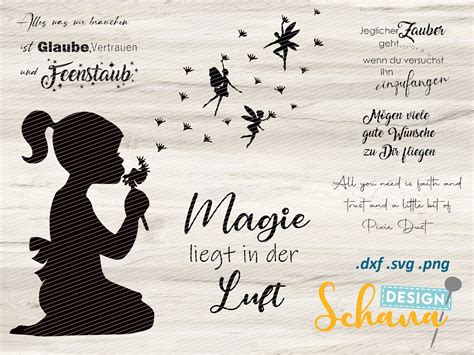 Alles was wir brauchen
ist Glaube, Vertrauen
und Feenstaub.
Jeglicher Zauber
geht
wenn du versuchst
ihn
einzufangen
Mögen viele
gute Wünsche
zu Dir fliegen
All you need is faith and
trust and a little bit of
Pixie Dust
Magie
liegt in der
Luft
.dxf .svg .png
DESIGN
Schana